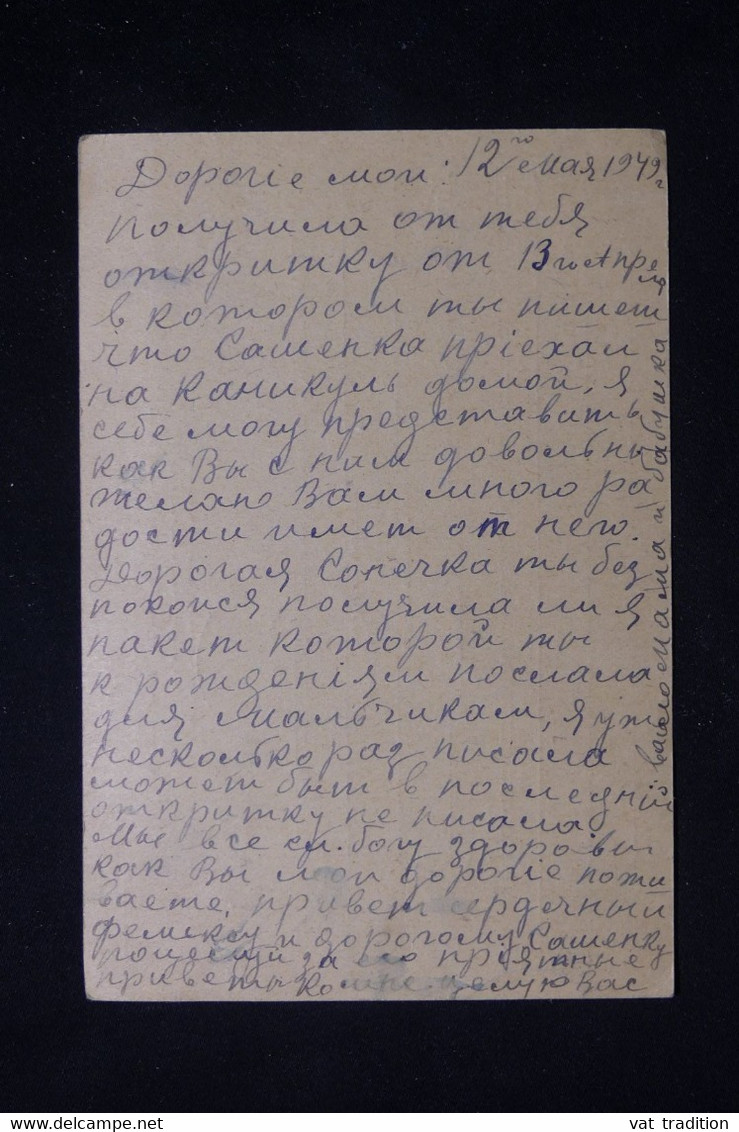 Дорогіе мои: 12го мая 1949г
получила от тебя
откритку от 13го Апреля
в котором ты пишет
что Сашенка пріехал
на каникуль домой, я
себе могу представить
как Вы с ним довольны
желаю Вам много ра
дости имет от него.
Дорогая Сонечка ты без
покоися получила ли я
пакет которой ты
к рожденіям послала
для Мальчикам, я уж
несколько раз писала
может быт в последній
откритку не писала.
Мы все сл. богу здоровы
как Вы мои дорогіе пожи
ваете, привет сердечный
Феликсу и дорогому Сашенку
поцелуй за его пріятные
приветы ко мне целую Вас
Мама и бабушка
vat tradition